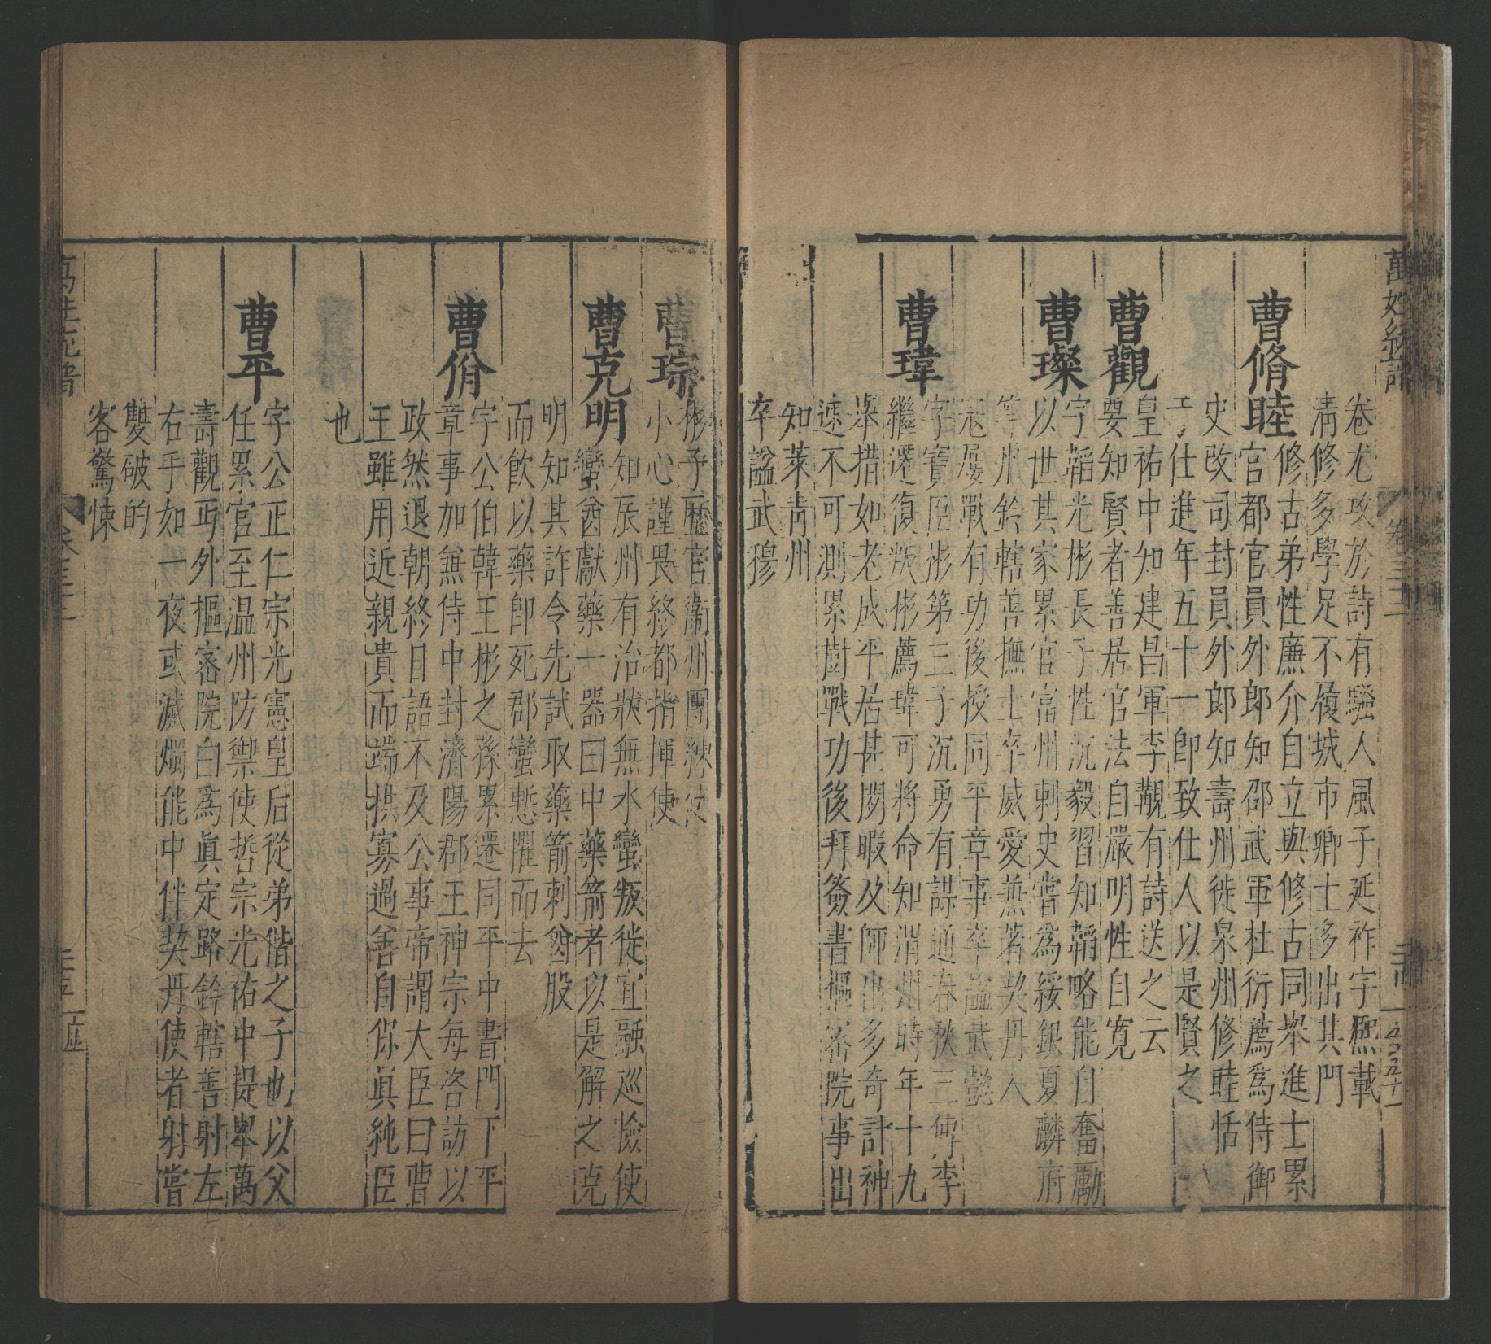 萬姓統譜
卷尤攻於詩有騷人風子延祚字熙載
清修多學足不履城市卿士多出其門
曹脩睦
修古弟性廉介自立與修古同舉進士累
官都官員外郎知邵武軍杜衍薦爲侍御
史改司封員外郎知壽州徙泉州修睦恬
于仕進年五十一卽致仕人以是賢之
曹觀
皇祐中知建昌軍李覯有詩送之云
要知賢者善居官法自嚴明性自寬
曹璨
字韜光彬長子性沉毅習知韜略能自奮勵
以世其家累官富州刺史嘗爲綏銀夏麟府
等州鈐轄善撫士卒威愛兼著契丹入
寇屢戰有功後授同平章事卒謚武懿
曹瑋
字寶臣彬第三子沉勇有謀通春秋三傳李
繼遷復叛彬薦瑋可將命知渭州時年十九
舉措如老成平居甚閒暇及師出多奇計神
速不可測累樹戰功後拜簽書樞密院事出
知萊青州
卒謚武穆
曹琮
彬子歷官衛州團練使
小心謹畏終都指揮使
曹克明
知辰州有治狀無水蠻叛徙宜融巡檢使
蠻酋獻藥一器曰中藥箭者以是解之克
明知其詐令先試取藥箭刺酋股
而飲以藥卽死郡蠻慙懼而去
曹佾
字公伯韓王彬之孫累遷同平中書門下平
章事加兼侍中封濟陽郡王神宗每咨訪以
政然退朝終日語不及公事帝謂大臣曰曹
王雖用近親貴而端拱寡過善自保眞純臣
也
曹平
字公正仁宗光憲皇后從弟偕之子也以父
任累官至温州防禦使哲宗光祐中提舉萬
壽觀丐外樞密院白爲眞定路鈐轄善射左
右手如一夜或滅燭能中伴契丹使者射嘗
雙破的
客驚悚